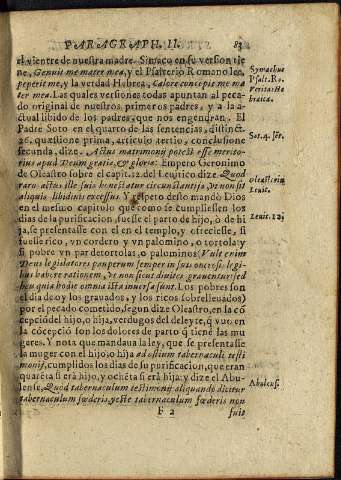 PARAGRAPH. II. 83
el vientre de nuestra madre. Simaco en su version tie
ne, Genuit me mater mea, y el Psalterio Romano lee,
peperit me, y la verdad Hebrea, Calore concepis me ma
ter mea. Las quales versiones todas apuntan al peca
do original de nuestros primeros padres, y a la a-
ctual libido de los padres, que nos engendran. El
Padre Soto en el quarto de las sentencias, distinct.
26. quæstione prima, articulo tertio, conclusione
secunda, dize. Actus matrimonij potest esse merito-
rius apud Deum gratie, & gloriæ: Empero Geronimo
de Oleastro sobre el capit. 12. del Leuitico dize. Quod
raro actus ille suis honestatur circunstantijs, vt non sit
aliquis libidinis excessus. Y despo desto mandò Dios
en el mesmo capitulo que como se cumpliessen los
dias de la purificacion, fuesse el parto de hijo, ò de hi
ja, se presentasse con el en el templo, y ofreciesse, si
fuesse rico, vn cordero y vn palomino, o tortola y
si pobre vn par de tortolas, o palominos. Vult enim
Deus legislatores pauperum semper in suis onerosis legi-
bus habere rationem, vt non sicut diuites grauentur: sed
heu quia hodie omnia ista inuersa sunt. Los pobres son
el dia de oy los grauados, y los ricos sobrelleuados)
por el pecado cometido, segun dize Oleastro, en la cō
cepciō del hijo, o hija, verdugos del deleyte, q̄ vuo en
la cōcepciō son los dolores de parto q̄ tiene las mu
geres. Y nota que mandaua la ley, que se presentasse
la muger con el hijo, o hija ad ostium tabernaculi testi
monij, cumplidos los dias de su purificacion, que eran
quarēta si era hijo, y ochēta si erà hija: y dize el Abu
lense, Quod tabernaculum testimonij aliquando dicitur
tabernaculum fœderis, y este tabernaculum fœderis non
F 2 suit
Symachus
Psalt. Ro.
Veritas He
braica.
Sot. 4. sēt.
Oleast. in
Leuit.
Leuit. 12.
Abulens.